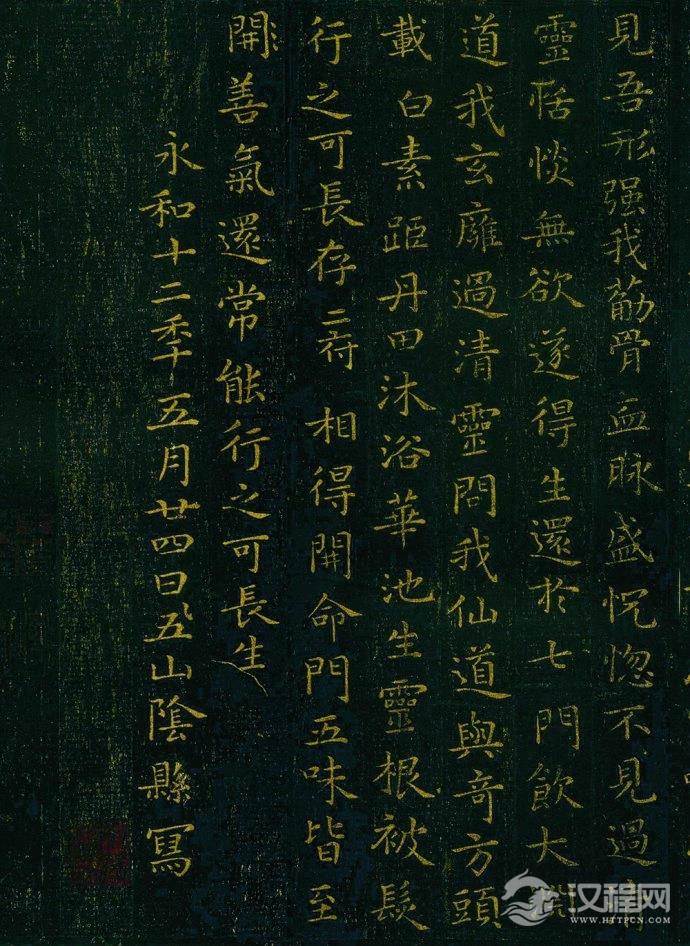 見吾形强我筋骨血脉盛怳惚不見過
靈恬惔無欲遂得生還於七門飲大
道我玄廱過清靈問我仙道與奇方頭
載白素距丹田沐浴華池生靈根被髮
行之可長存二府相得開命門五味皆至
開善氣還常能行之可長生
永和十二年五月廿四日五山陰縣寫
汉程网
WWW.HTTPCN.COM